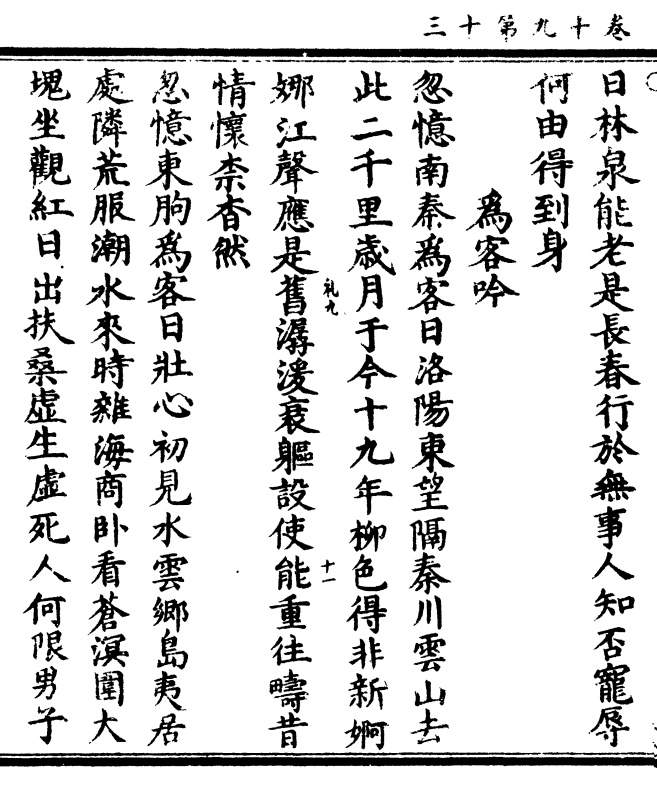 卷十九第十三
日林泉能老是長春行於無事人知否寵辱
何由得到身
爲客吟
忽憶南秦爲客日洛陽東望隔秦川雲山去
此二千里歲月于今十九年柳色得非新婀
娜江聲應是舊潺湲衰軀設使能重往疇昔
礼九
十一
情懷柰杳然
忽憶東朐爲客日壯心初見水雲鄉島夷居
處隣荒服潮水來時雜海商卧看蒼溟圍大
塊坐觀紅日出扶桑虛生虛死人何限男子